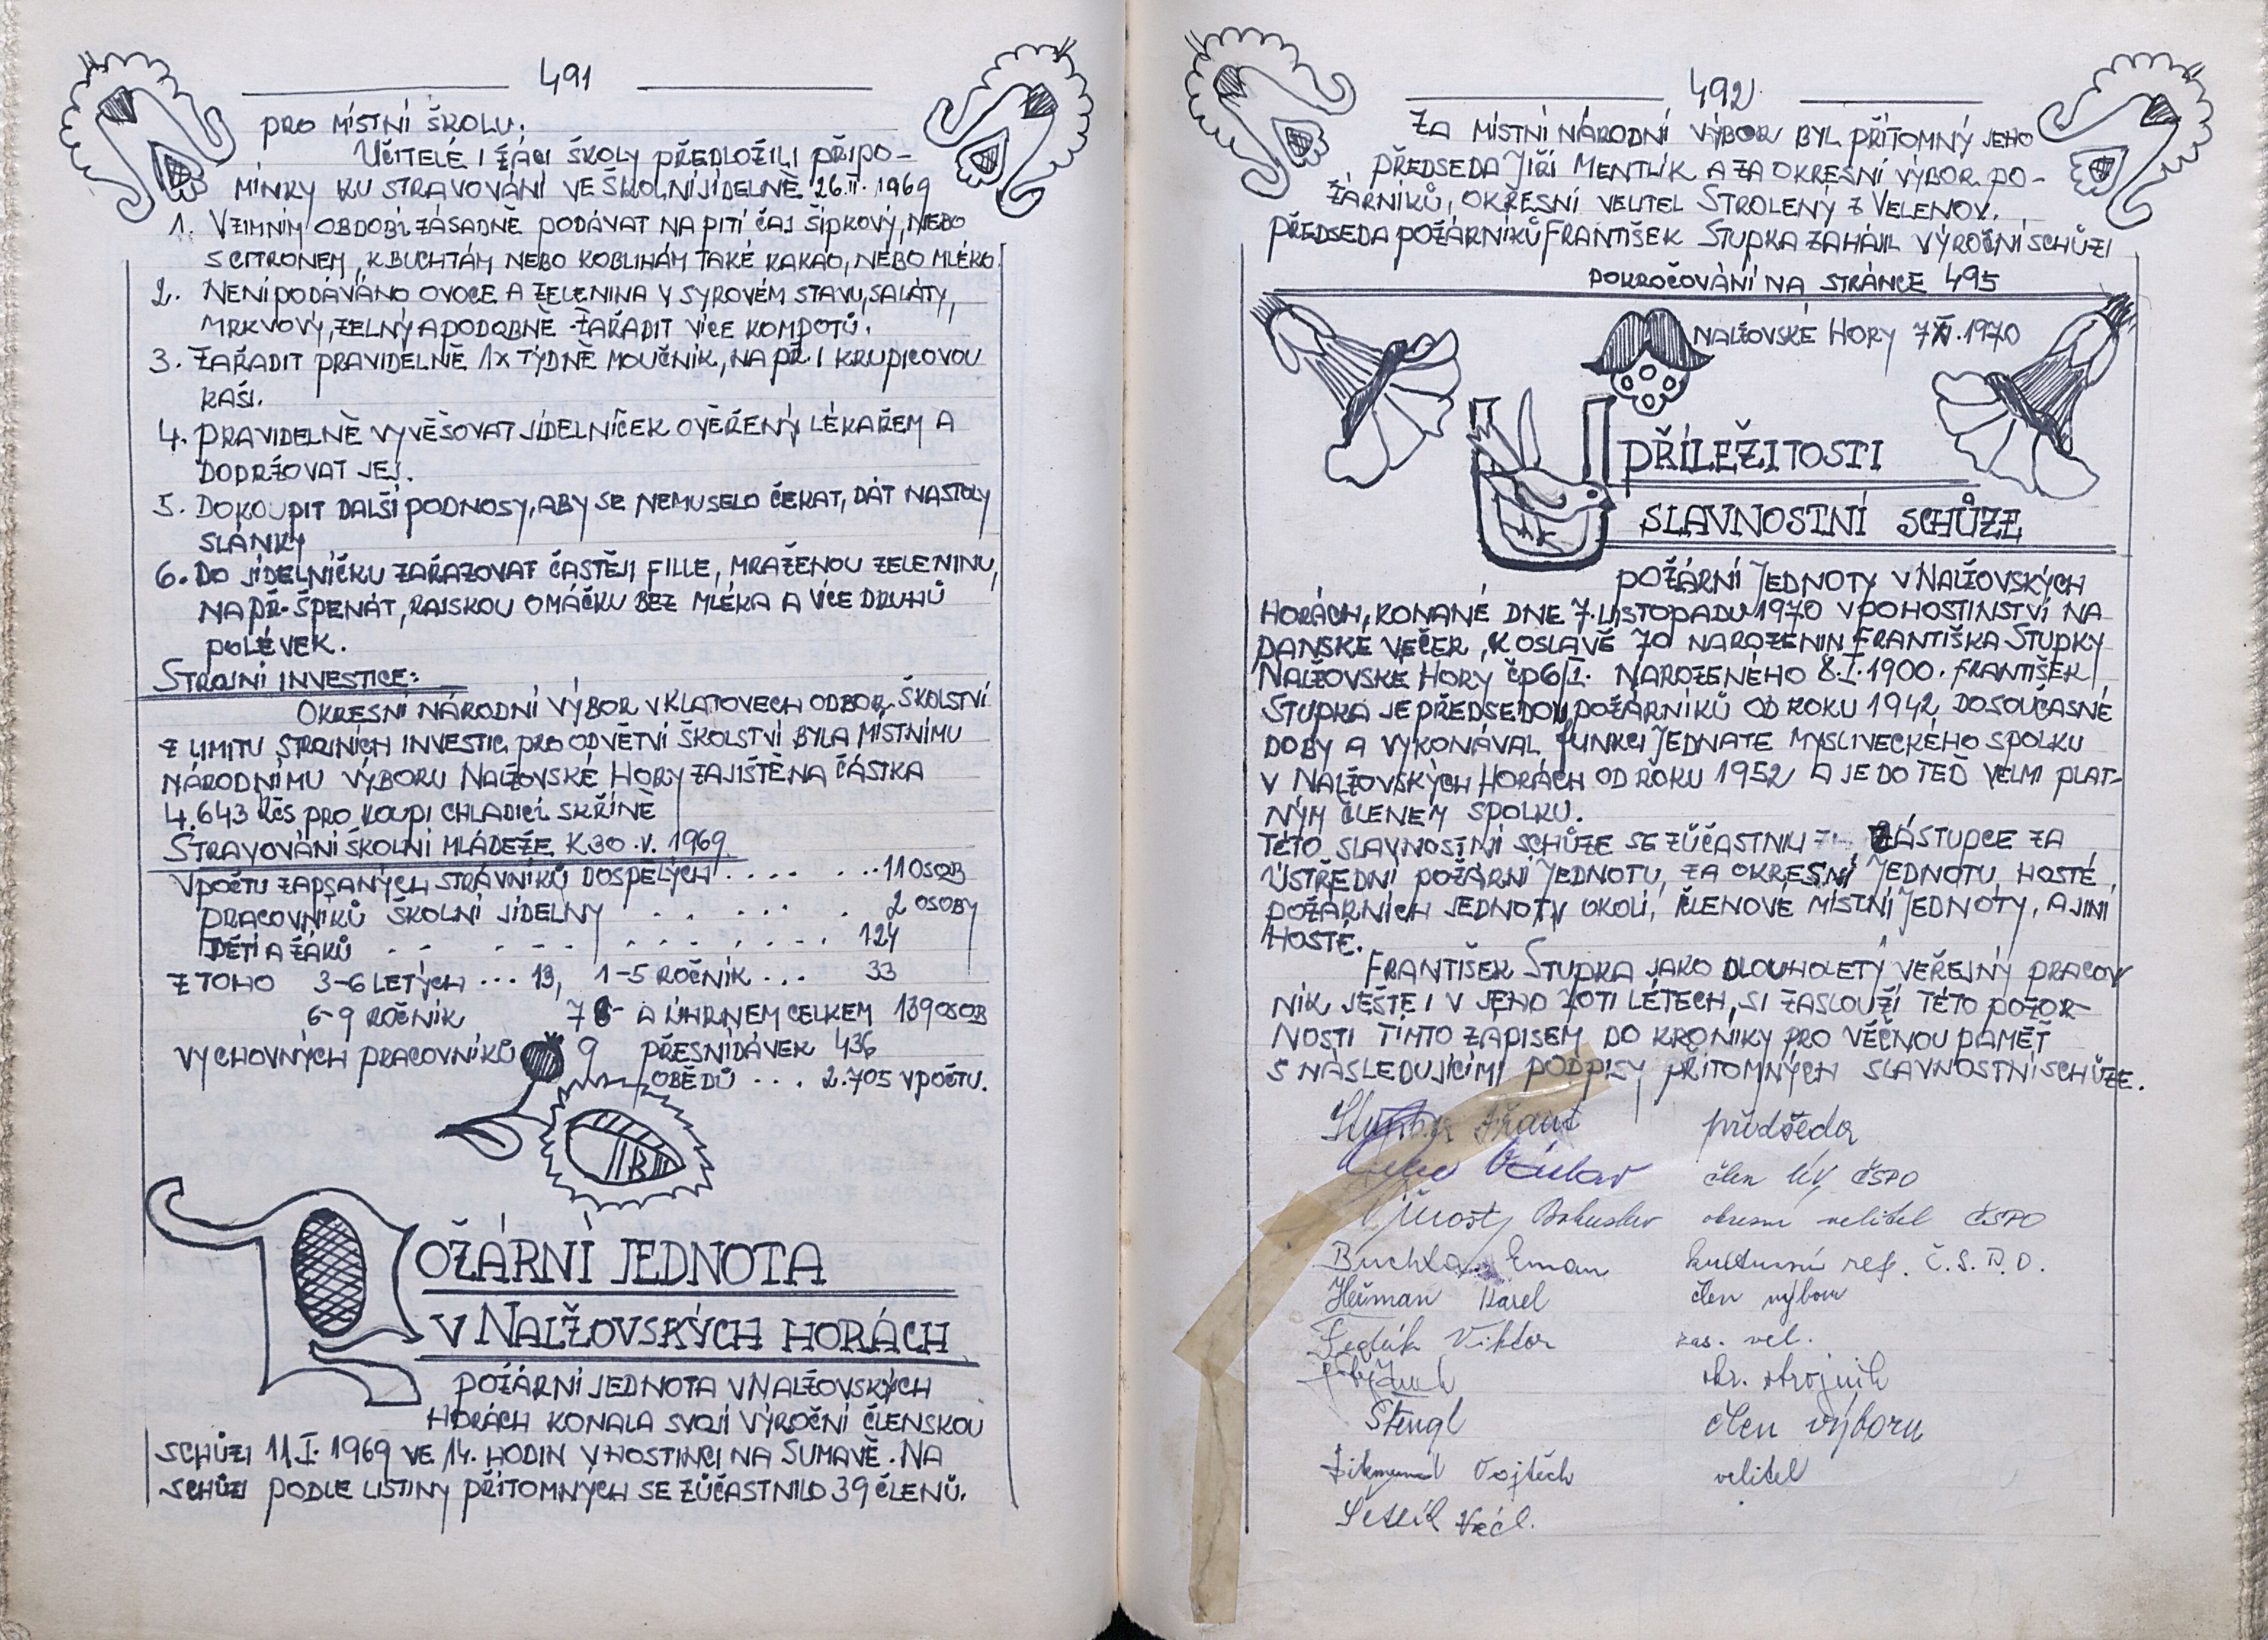 491
PRO MÍSTNÍ ŠKOLU.
UČITELÉ I ŽÁCI ŠKOLY PŘEDLOŽILI PŘIPO-
MÍNKY KU STRAVOVÁNÍ VE ŠKOLNÍ JÍDELNĚ 26.II.1969
1. V ZIMNÍM OBDOBÍ ZÁSADNĚ PODÁVAT NA PITÍ ČAJ ŠÍPKOVÝ, NEBO
S CITRONEM, K BUCHTÁM NEBO KOBLIHÁM TAKÉ KAKAO, NEBO MLÉKO.
2. NENÍ PODÁVÁNO OVOCE A ZELENINA V SYROVÉM STAVU, SALÁTY,
MRKVOVÝ, ZELNÝ A PODOBNĚ - ZAŘADIT VÍCE KOMPOTŮ.
3. ZAŘADIT PRAVIDELNĚ 1x TÝDNĚ MOUČNÍK, NA PŘ. I KRUPICOVOU
KAŠI.
4. PRAVIDELNĚ VYVĚŠOVAT JÍDELNÍČEK OVĚŘENÝ LÉKAŘEM A
DODRŽOVAT JEJ.
5. DOKOUPIT DALŠÍ PODNOSY, ABY SE NEMUSELO ČEKAT, DÁT NA STOLY
SLÁNKY
6. DO JÍDELNÍČKU ZAŘAZOVAT ČASTĚJI FILLE, MRAŽENOU ZELENINU,
NA PŘ. ŠPENÁT, RAJSKOU OMÁČKU BEZ MLÉKA A VÍCE DRUHŮ
POLÉVEK.
STROJNÍ INVESTICE:
OKRESNÍ NÁRODNÍ VÝBOR V KLATOVECH ODBOR ŠKOLSTVÍ
Z LIMITU STROJNÍCH INVESTIC PRO ODVĚTVÍ ŠKOLSTVÍ BYLA MÍSTNÍMU
NÁRODNÍMU VÝBORU NALŽOVSKÉ HORY ZAJIŠTĚNA ČÁSTKA
4.643 Kčs PRO KOUPI CHLADÍCÍ SKŘÍNĚ
STRAVOVÁNÍ ŠKOLNÍ MLÁDEŽE K 30.V. 1969
V POČTU ZAPSANÝCH STRÁVNÍKŮ DOSPĚLÝCH . . . . . . 11 OSOB
PRACOVNÍKŮ ŠKOLNÍ JÍDELNY . . . . . . 2 OSOBY
DĚTÍ A ŽÁKŮ . . . . . . . . . . . 124
Z TOHO 3-6 LETÝCH ... 13, 1-5 ROČNÍK ... 33
6-9 ROČNÍK 78 - A ÚHRNEM CELKEM 139 OSOB
VYCHOVNÝCH PRACOVNÍKŮ 9 PŘESNÍDÁVEK 436
OBĚDŮ ... 2.705 V POČTU.
POŽÁRNÍ JEDNOTA
V NALŽOVSKÝCH HORÁCH
POŽÁRNÍ JEDNOTA V NALŽOVSKÝCH
HORÁCH KONALA SVOJÍ VÝROČNÍ ČLENSKOU
SCHŮZI 11.I. 1969 VE 14. HODIN V HOSTINCI NA ŠUMAVĚ. NA
SCHŮZI PODLE LISTINY PŘÍTOMNÝCH SE ZŮČASTNILO 39 ČLENŮ.
492
ZA MÍSTNÍ NÁRODNÍ VÝBOR BYL PŘÍTOMNÝ JEHO
PŘEDSEDA JIŘÍ MENTLÍK A ZA OKRESNÍ VÝBOR PO-
ŽÁRNÍKŮ, OKRESNÍ VELITEL STROLENÝ Z VELENOV.
PŘEDSEDA POŽÁRNÍKŮ FRANTIŠEK STUPKA ZAHÁJIL VÝROČNÍ SCHŮZI
POKROČOVÁNÍ NA STRÁNCE 495
NALŽOVSKÉ HORY 7XI.1970
U PŘÍLEŽITOSTI
SLAVNOSTNÍ SCHŮZE
POŽÁRNÍ JEDNOTY V NALŽOVSKÝCH
HORÁCH, KONANÉ DNE 7. LISTOPADU 1970 V POHOSTINSTVÍ NA
PANSKÉ VEČER, K OSLAVĚ 70 NAROZENIN FRANTIŠKA STUPKY
NALŽOVSKÉ HORY ČP 6/I. NAROZENÉHO 8.I.1900. FRANTIŠEK
STUPKA JE PŘEDSEDOU POŽÁRNÍKŮ OD ROKU 1942 DO SOUČASNÉ
DOBY A VYKONÁVAL FUNKCI JEDNATE MYSLIVECKÉHO SPOLKU
V NALŽOVSKÝCH HORÁCH OD ROKU 1952 A JE DO TEĎ VELMI PLAT-
NÝM ČLENEM SPOLKU.
TÉTO SLAVNOSTNÍ SCHŮZE SE ZŮČASTNIL ZÁSTUPCE ZA
ÚSTŘEDNÍ POŽÁRNÍ JEDNOTU, ZA OKRESNÍ JEDNOTU, HOSTÉ
POŽÁRNÍCH JEDNOT V OKOLÍ, ČLENOVÉ MÍSTNÍ JEDNOTY, A JINÍ
HOSTÉ.
FRANTIŠEK STUPKA JAKO DLOUHOLETÝ VEŘEJNÝ PRACOV
NÍK JEŠTĚ I V JEHO 70TI LÉTECH, SI ZASLOUŽÍ TÉTO POZOR-
NOSTI TÍMTO ZÁPISEM DO KRONIKY PRO VĚČNOU PAMĚŤ
S NÁSLEDUJÍCÍMI PODPISY PŘÍTOMNÝCH SLAVNOSTNÍ SCHŮZE.
Stupka Frant předseda
Václav člen ÚV ČSPO
Bohuslav okresní velitel ČSPO
Buchta Eman kulturní ref. Č.S.P.O.
Heřman Karel člen výboru
Viktor zás. vel.
okr. strojník
Štengl člen výboru
Vojtěch velitel
Václ.